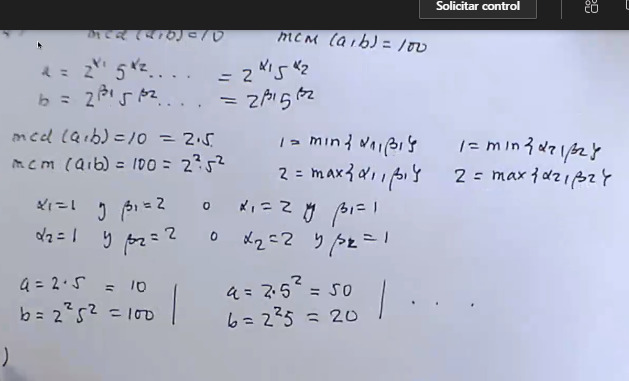 Solicitar control
mcd (a,b) = 10 mcm (a,b) = 100
a = 2^α1 5^α2 .... = 2^α1 5^α2
b = 2^β1 5^β2 .... = 2^β1 5^β2
mcd (a,b) = 10 = 2·5 1 = min{α1,β1} 1 = min{α2,β2}
mcm (a,b) = 100 = 2²·5² 2 = max{α1,β1} 2 = max{α2,β2}
α1=1 y β1=2 o α1=2 y β1=1
α2=1 y β2=2 o α2=2 y β2=1
a = 2·5 = 10 | a = 2·5² = 50 | . . .
b = 2²5² = 100 | b = 2²5 = 20 |
)